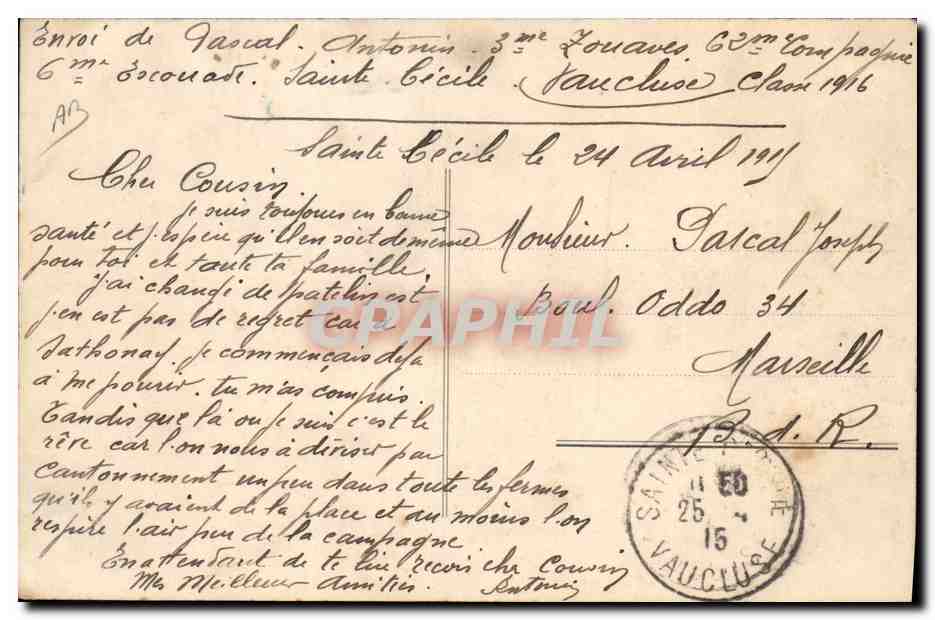 Enroi de Pascal. Antonin. 3me Zouaves 62me Compagnie
6me Escouade. Sainte Cécile (Vaucluse) Classe 1916
AB
Sainte Cécile le 24 Avril 1915
Cher Cousin.
Je suis toujours en bonne
santé et j'espère qu'il en soit de même
pour toi et toute ta famille,
J'ai changé de patelin et
j'en est pas de regret car à
Sathonay. je commençais déjà
à me pourrir. tu m'as compris.
Tandis que là ou je suis c'est le
rêve car l'on nous à diviser par
cantonnement un peu dans toute les fermes
qu'ils y avaient de la place et au moins l'on
respire l'air pur de la campagne
En attendant de te lire reçois cher Cousin
Mes Meilleur Amitiés. Antonin
Monsieur. Pascal Joseph
Boul. Oddo 34
Marseille
B. d. R.
SAINTE CÉCILE
25 4
15
VAUCLUSE
CPAPHIL